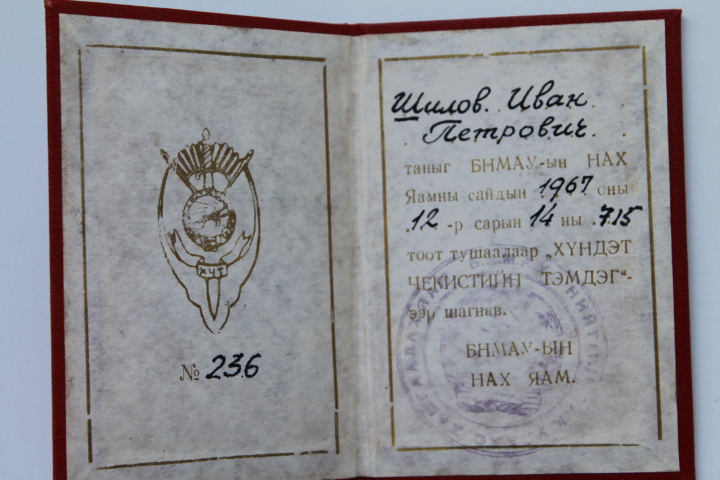 ХЧТ
№ 236
Шилов Иван
Петрович.
таныг БНМАУ-ын НАХ
Яамны сайдын 1967 оны
12-р сарын 14 ны 715
тоот тушаалаар „ХҮНДЭТ
ЧЕКИСТИЙН ТЭМДЭГ"-
ээр шагнав.
БНМАУ-ЫН
НАХ ЯАМ.